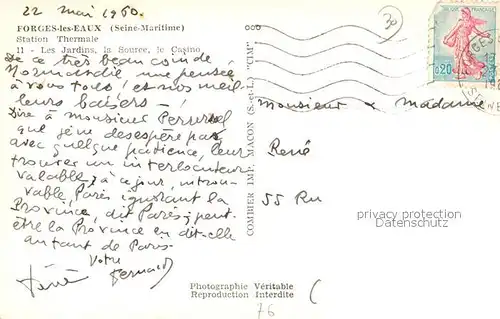 22 mai 1960.
FORGES-les-EAUX (Seine-Maritime)
Station Thermale
11 - Les Jardins, la Source, le Casino
De ce très beau coin de
Normandie, une pensée
à vous tous! et nos meil-
leurs baisers -!
Dire à Monsieur
que je ne désespère pas
avec quelque patience, leur
trouver un interlocuteur
valable, à ce jour, introu-
vable, Paris ignorant la
Province, dit Paris; peut-
être la Province en dit-elle
autant de Paris.
Votre
Bernard
COMBIER IMP. MACON (S.-et-L.) "CIM"
30
FRANÇAISE
0,20
Monsieur & Madame
René
55 Ru
privacy protection
Datenschutz
Photographie Véritable
Reproduction Interdite
76